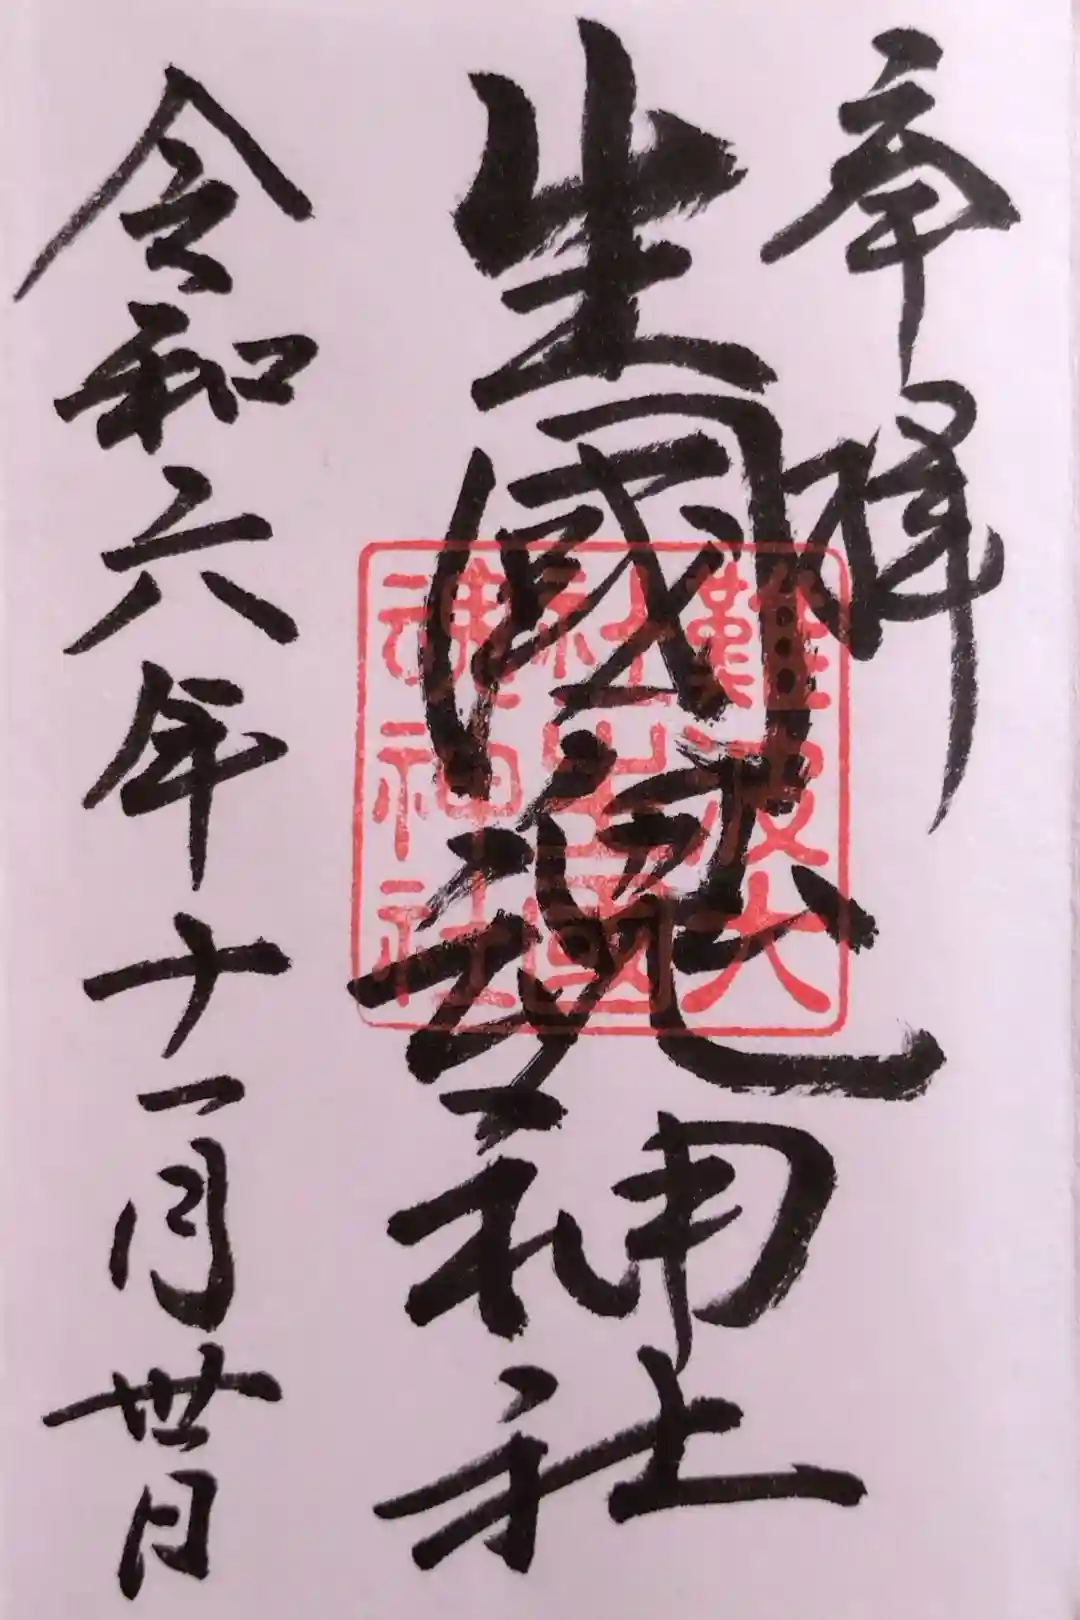 奉拝
生國魂神社
難波大
社生國
魂神社
令和六年十一月丗日